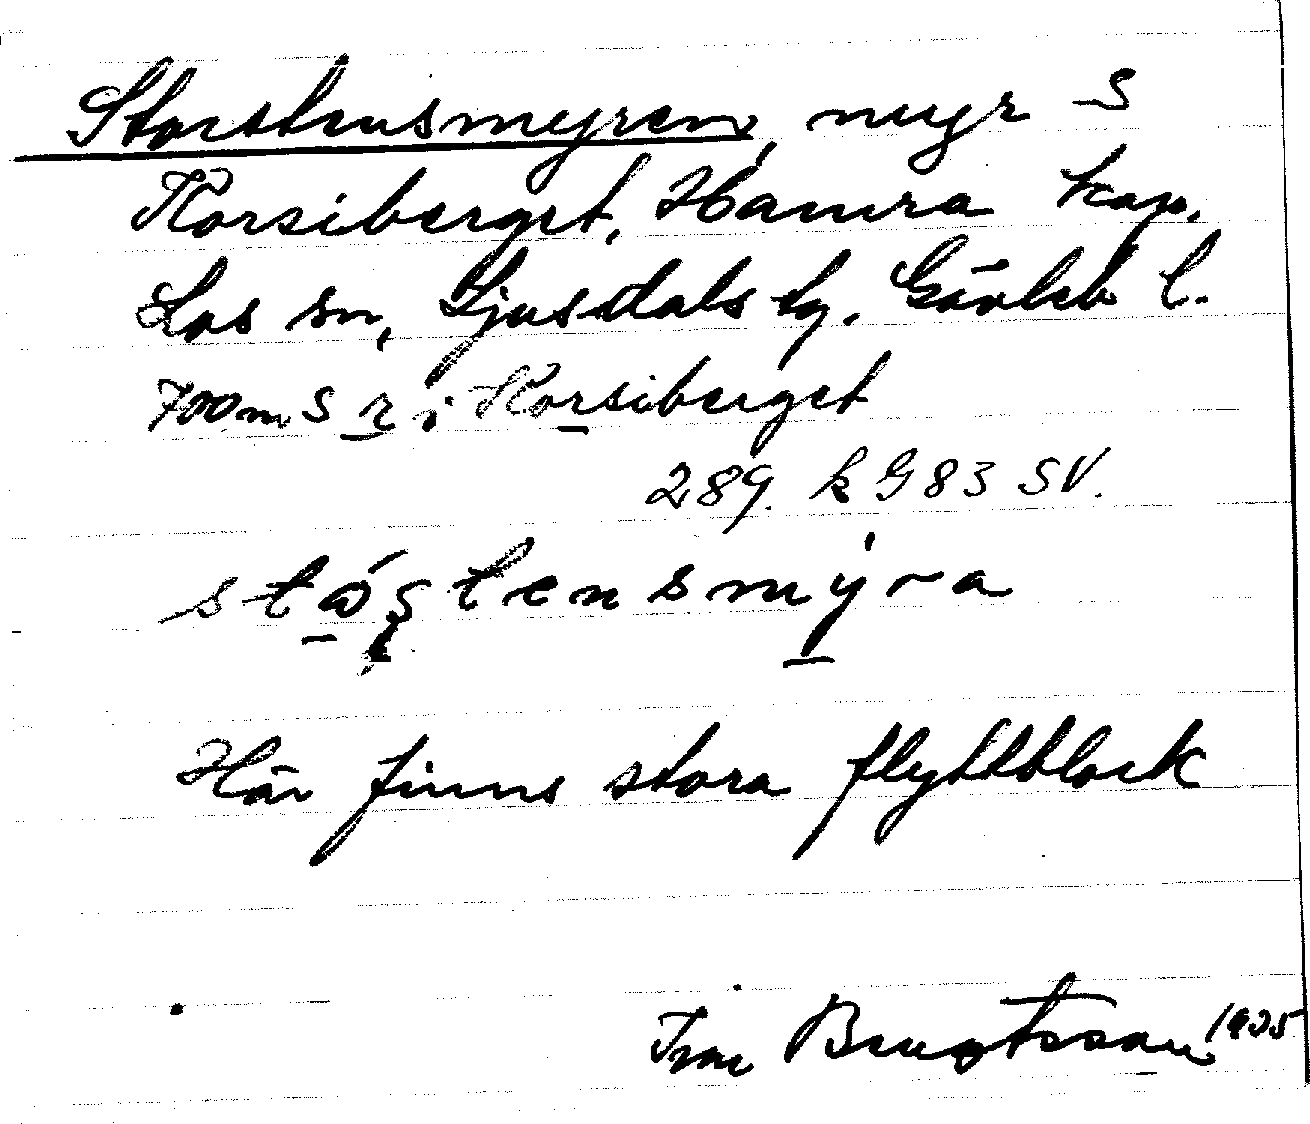 Storstensmyren, myr S
Korsiberget, Hamra kap.
Los sn, Ljusdals tg. Gävleb l.
700 m S r i Korsiberget
289. k G 83 SV.
stóştensmýra
Här finns stora flyttblock
Bengtsson 1935